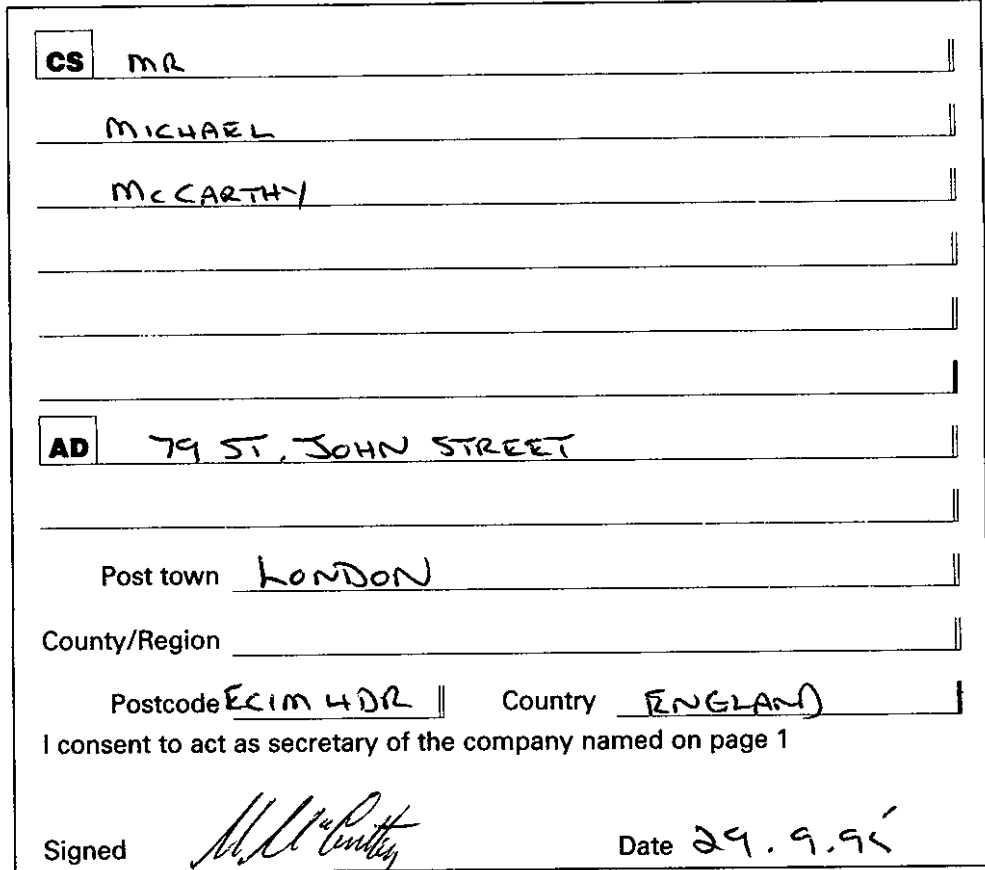 CS MR
MICHAEL
McCARTHY
AD 79 ST. JOHN STREET
Post town LONDON
County/Region
Postcode EC1M 4DR Country ENGLAND
I consent to act as secretary of the company named on page 1
Signed M. McCarthy Date 29.9.95